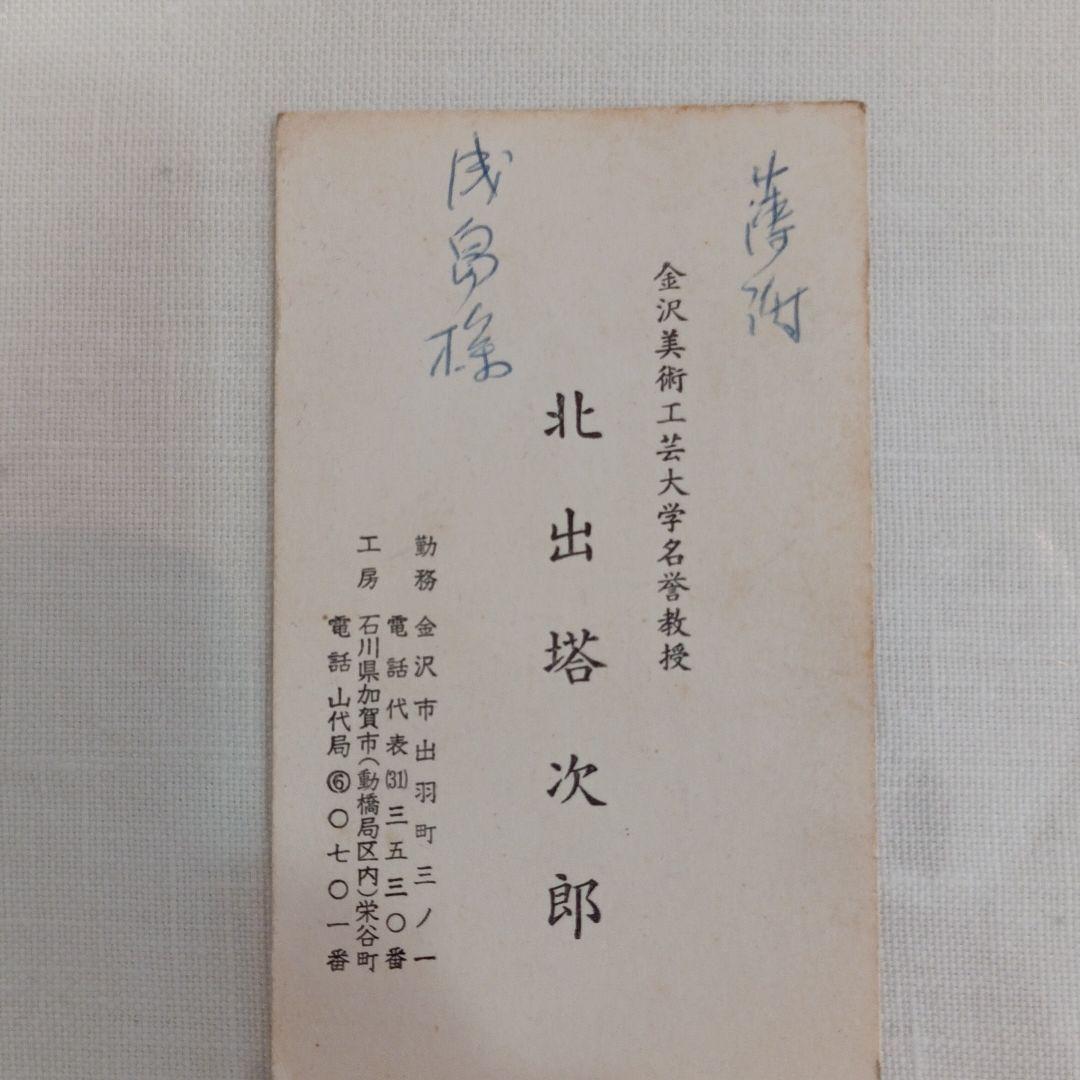 薄謝
金沢美術工芸大学名誉教授
北出塔次郎
浅畠様
勤務 金沢市出羽町三ノ一
電話代表(31)三五三〇番
工房 石川県加賀市(動橋局区内)栄谷町
電話山代局⑥〇七〇一番